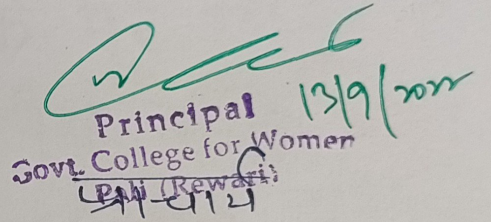 13/9/2022
Principal
Govt. College for Women
Pali (Rewari)
प्राचार्य